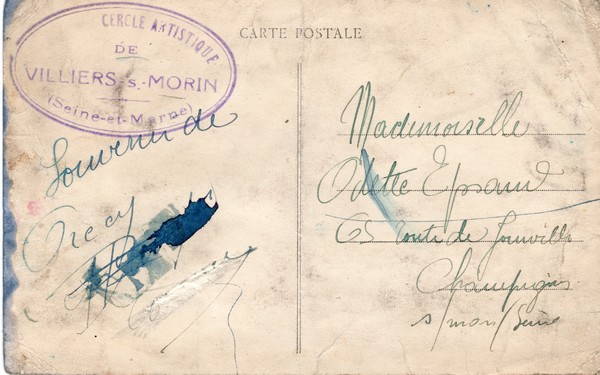 CERCLE ARTISTIQUE
DE
VILLIERS-s.-MORIN
(Seine-et-Marne)
CARTE POSTALE
Souvenir de
Crecy
Mademoiselle
Odette
65 route de Joinville
Champigny
s/marn/Seine